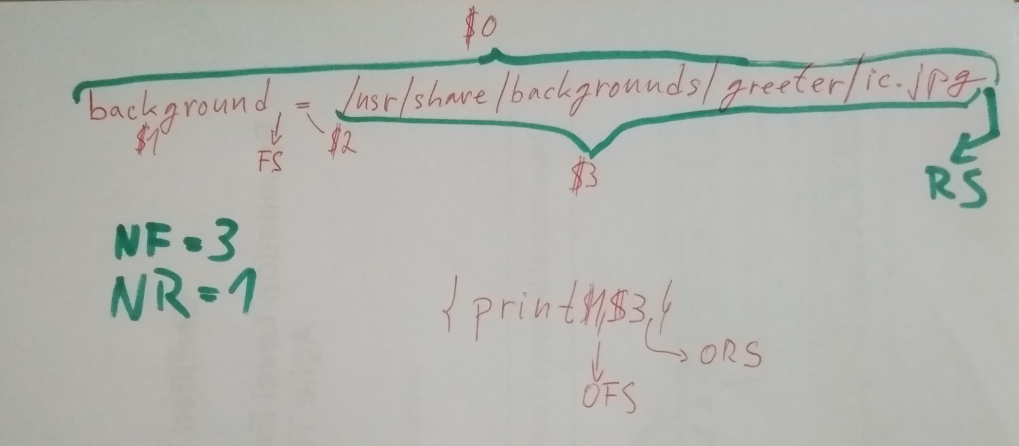 $0
background = /usr/share/backgrounds/greeter/ic.jpg
$1 FS $2 $3 RS
NF=3
NR=1
{ print $1,$3 }
ORS
OFS